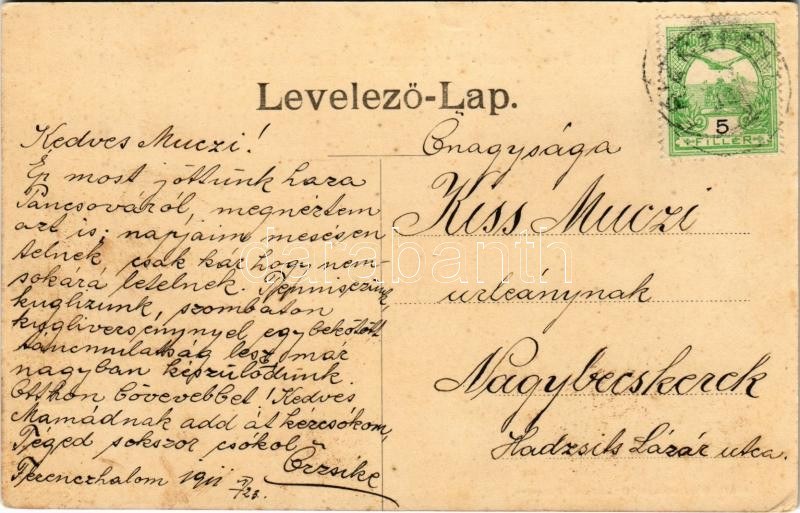 Levelező-Lap.
Kedves Muczi!
Ép most jöttünk haza
Páncsováról, megnéztem
azt is; napjaim mesésen
telnek csak kár hogy nem-
sokára letelnek. Tenniszezünk,
kuglizunk, szombaton
kugliversennyel egybekötött
táncmulatság lesz már
nagyban készülődünk.
Otthon bővebbet! Kedves
Mamádnak add át kézcsókom,
Téged sokszor csókol
Erzsike
Ferenczhalom 1911
Őnagysága
Kiss Muczi
urleánynak
Nagybecskerek
Hadzsits Lázár utca.
5
FILLÉR
darabanth